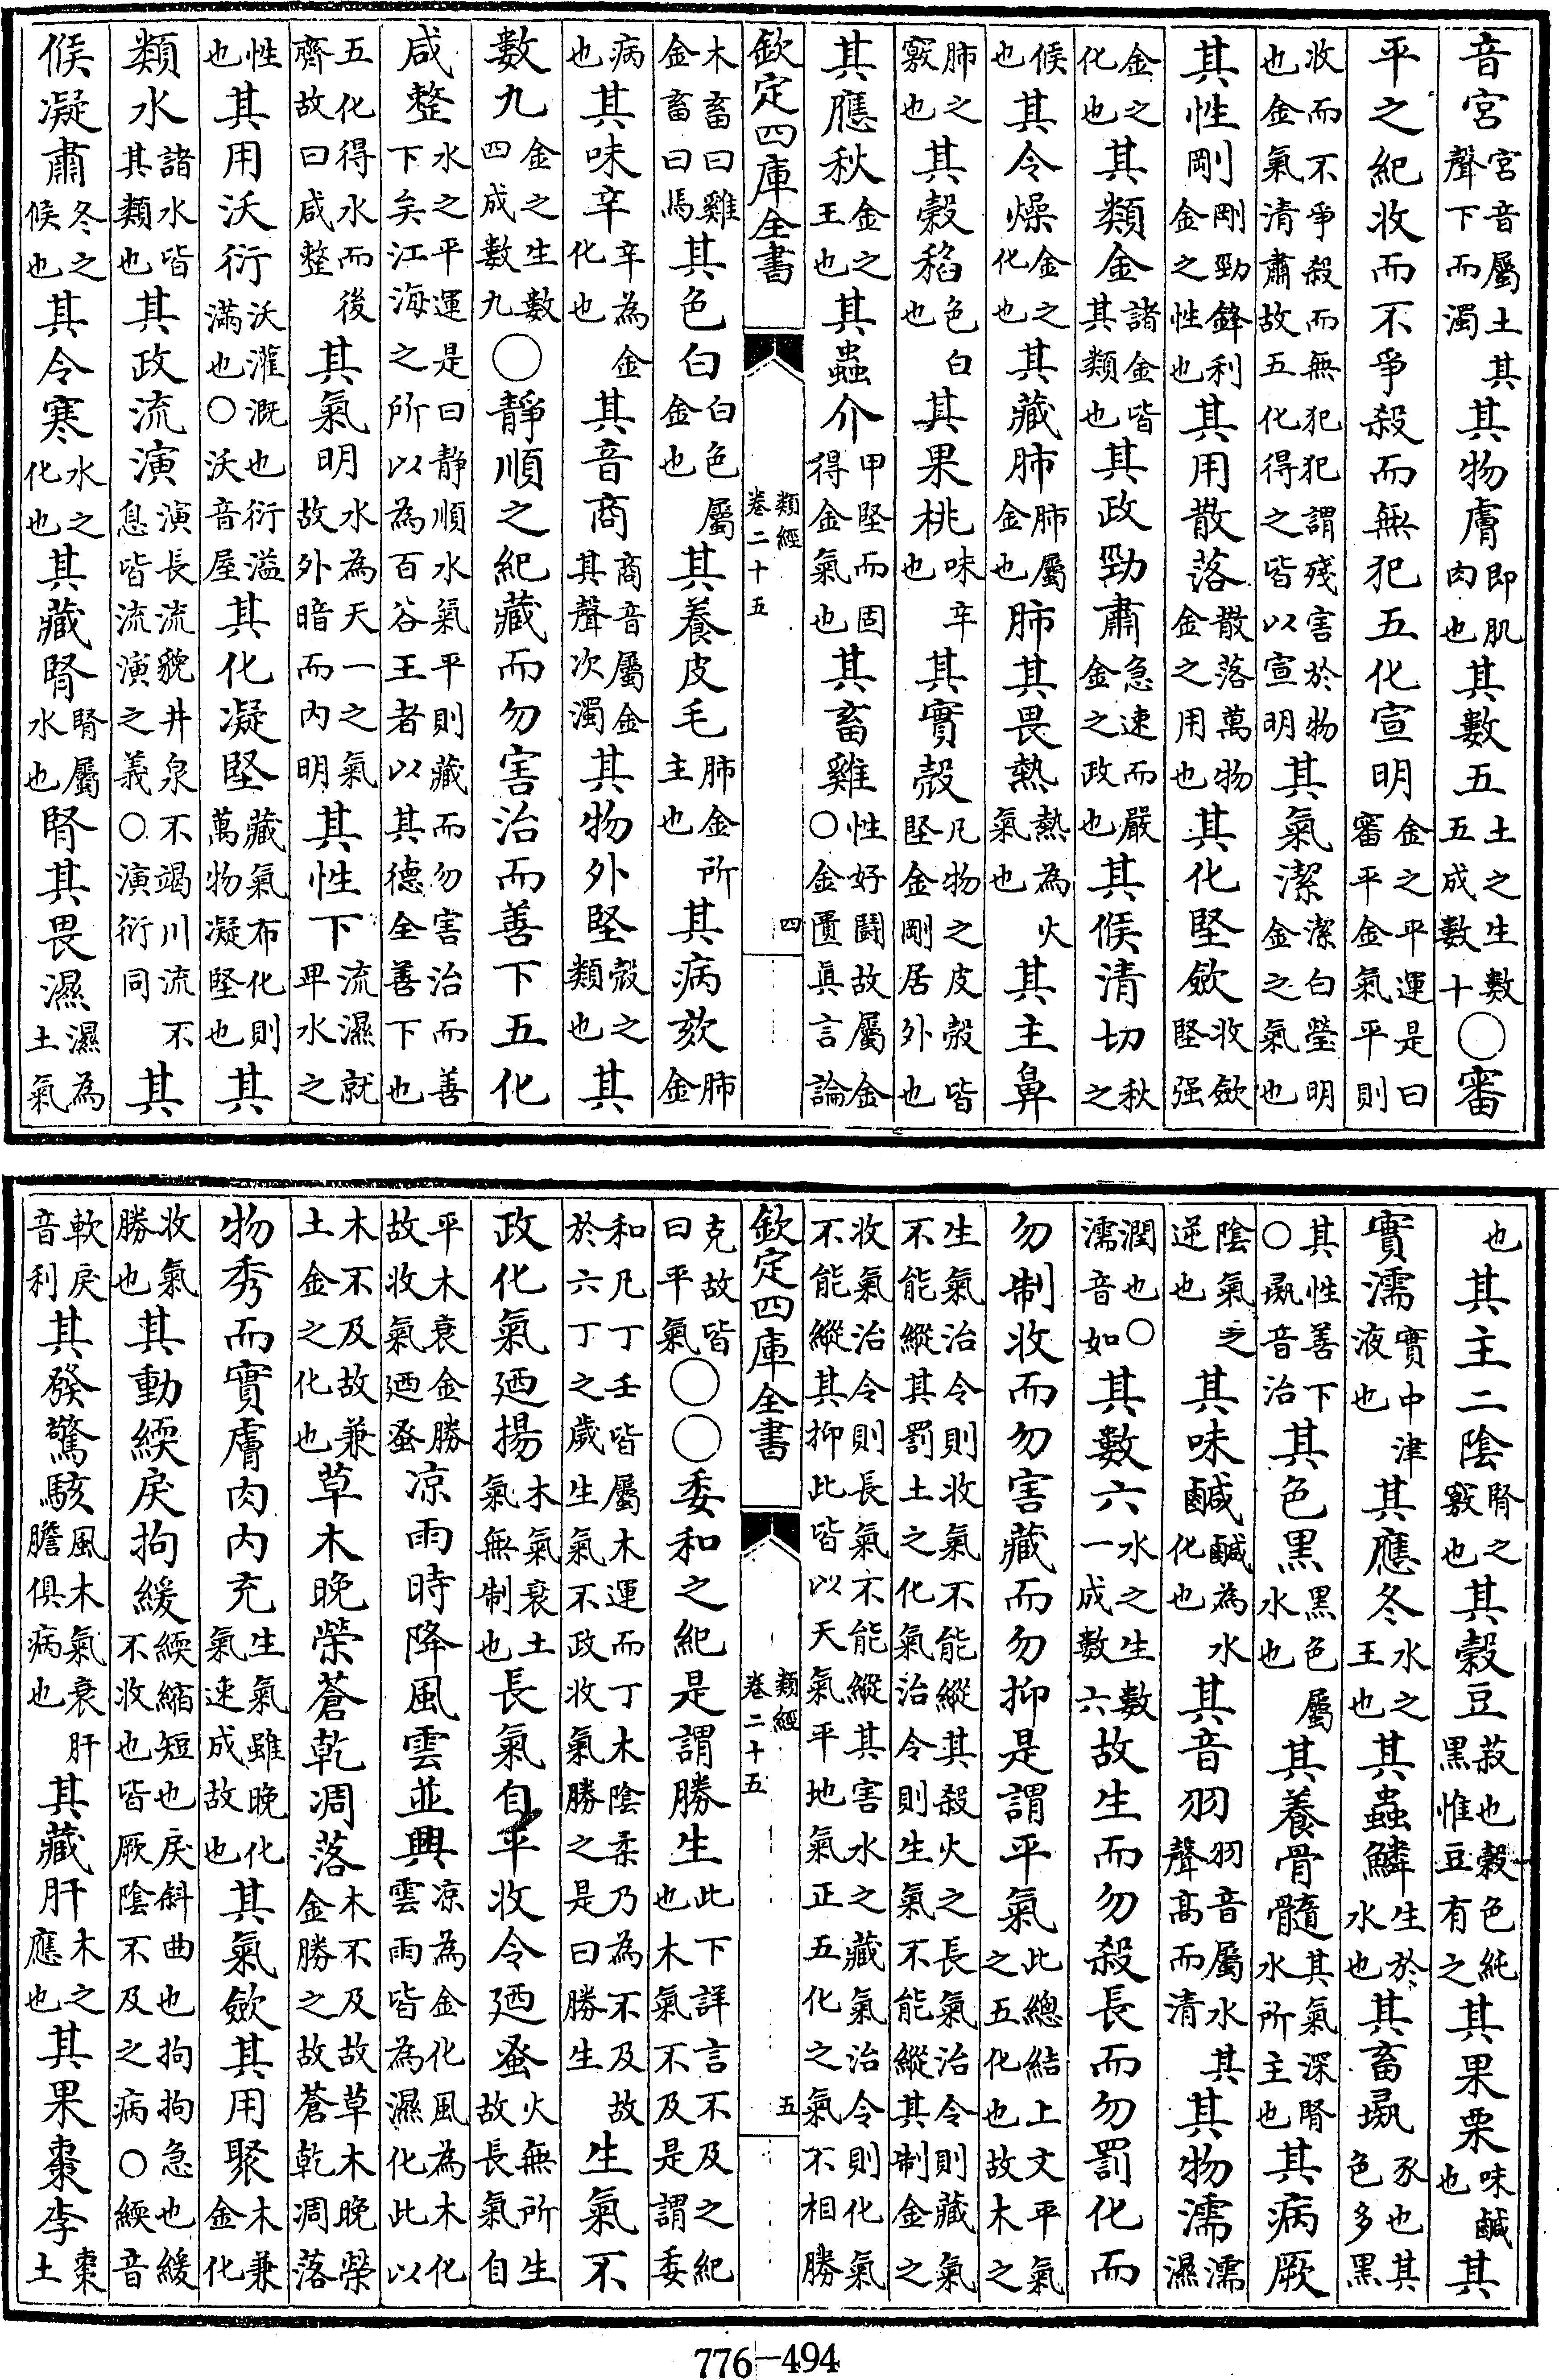 音宮宮音屬土其聲下而濁其物膚即肌肉也其數五土之生數五成數十○審
平之紀收而不爭殺而無犯五化宣明金之平運是曰審平金氣平則
收而不爭殺而無犯犯謂殘害於物也金氣清肅故五化得之皆以宣明其氣潔潔白瑩明金之氣也
其性剛剛勁鋒利金之性也其用散落散落萬物金之用也其化堅斂收斂堅强
金之化也其類金諸金皆其類也其政勁肅急速而嚴金之政也其候清切秋之
候也其令燥金之化也其藏肺肺屬金也肺其畏熱熱為火氣也其主鼻
肺之竅也其榖稻色白也其果桃味辛也其實殼凡物之皮殼皆堅金剛居外也
其應秋金之王也其蟲介甲堅而固得金氣也其畜雞性好鬭故屬金○金匱真言論
欽定四庫全書 類經 卷二十五 四
木畜曰雞金畜曰馬其色白白色屬金也其養皮毛肺金所主也其病欬肺金
病也其味辛辛為金化也其音商商音屬金其聲次濁其物外堅殼之類也其
數九金之生數四成數九○靜順之紀藏而勿害治而善下五化
咸整水之平運是曰静順水氣平則藏而勿害治而善下矣江海之所以為百谷王者以其德全善下也
五化得水而後齊故曰咸整其氣明水為天一之氣故外暗而内明其性下流濕就卑水之
性也其用沃衍沃灌溉也衍溢滿也○沃音屋其化凝堅藏氣布化則萬物凝堅也其
類水諸水皆其類也其政流演演長流貌井泉不竭川流不息皆流演之義○演衍同其
候凝肅冬之候也其令寒水之化也其藏腎腎屬水也腎其畏濕濕為土氣
也其主二陰腎之竅也其榖豆菽也榖色純黑惟豆有之其果栗味鹹也其
實濡實中津液也其應冬水之王也其蟲鱗生於水也其畜彘豕也其色多黑
其性善下○彘音治其色黑黑色屬水也其養骨髓其氣深腎水所主也其病厥
陰氣之逆也其味鹹鹹為水化也其音羽羽音屬水其聲高而清其物濡濡濕
潤也○濡音如其數六水之生數一成數六故生而勿殺長而勿罰化而
勿制收而勿害藏而勿抑是謂平氣此總結上文平氣之五化也故木之
生氣治令則收氣不能縱其殺火之長氣治令則藏氣不能縱其罰土之化氣治令則生氣不能縱其制金之
收氣治令則長氣不能縱其害水之藏氣治令則化氣不能縱其抑此皆以天氣平地氣正五化之氣不相勝
欽定四庫全書 類經 卷二十五 五
克故皆曰平氣○○委和之紀是謂勝生此下詳言不及之紀也木氣不及是謂委
和凡丁壬皆屬木運而丁木陰柔乃為不及故於六丁之歲生氣不政收氣勝之是曰勝生生氣不
政化氣廼揚木氣衰土氣無制也長氣自平收令廼蚤火無所生故長氣自
平木衰金勝故收氣廼蚤凉雨時降風雲並興凉為金化風為木化雲雨皆為濕化此以
木不及故兼土金之化也草木晚榮蒼乾凋落木不及故草木晚榮金勝之故蒼乾凋落
物秀而實膚肉内充生氣雖晚化氣速成故也其氣斂其用聚木兼金化
收氣勝也其動緛戾拘緩緛縮短也戾斜曲也拘拘急也緩不收也皆厥陰不及之病○緛音
軟戾音利其發驚駭風木氣衰肝膽俱病也其藏肝木之應也其果棗李棗土
776-494